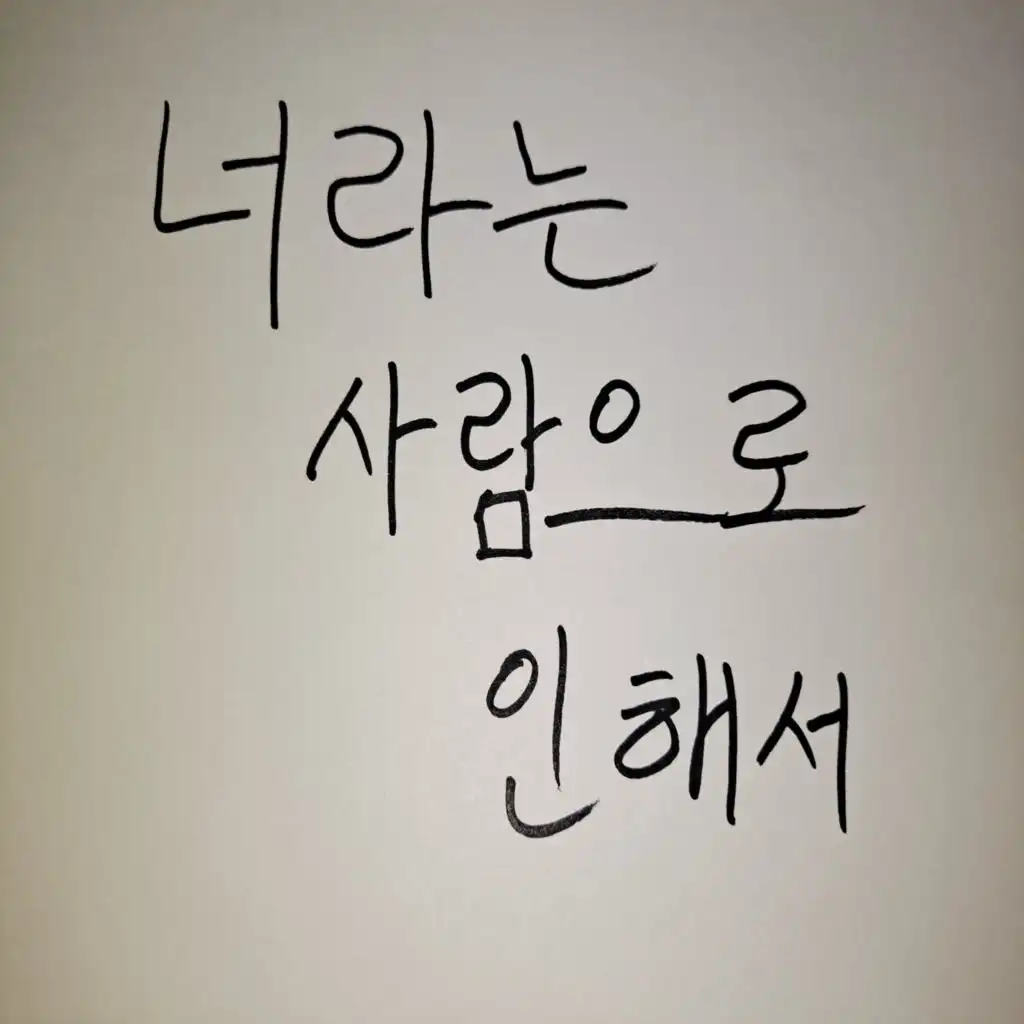 너라는
사람으로
인해서